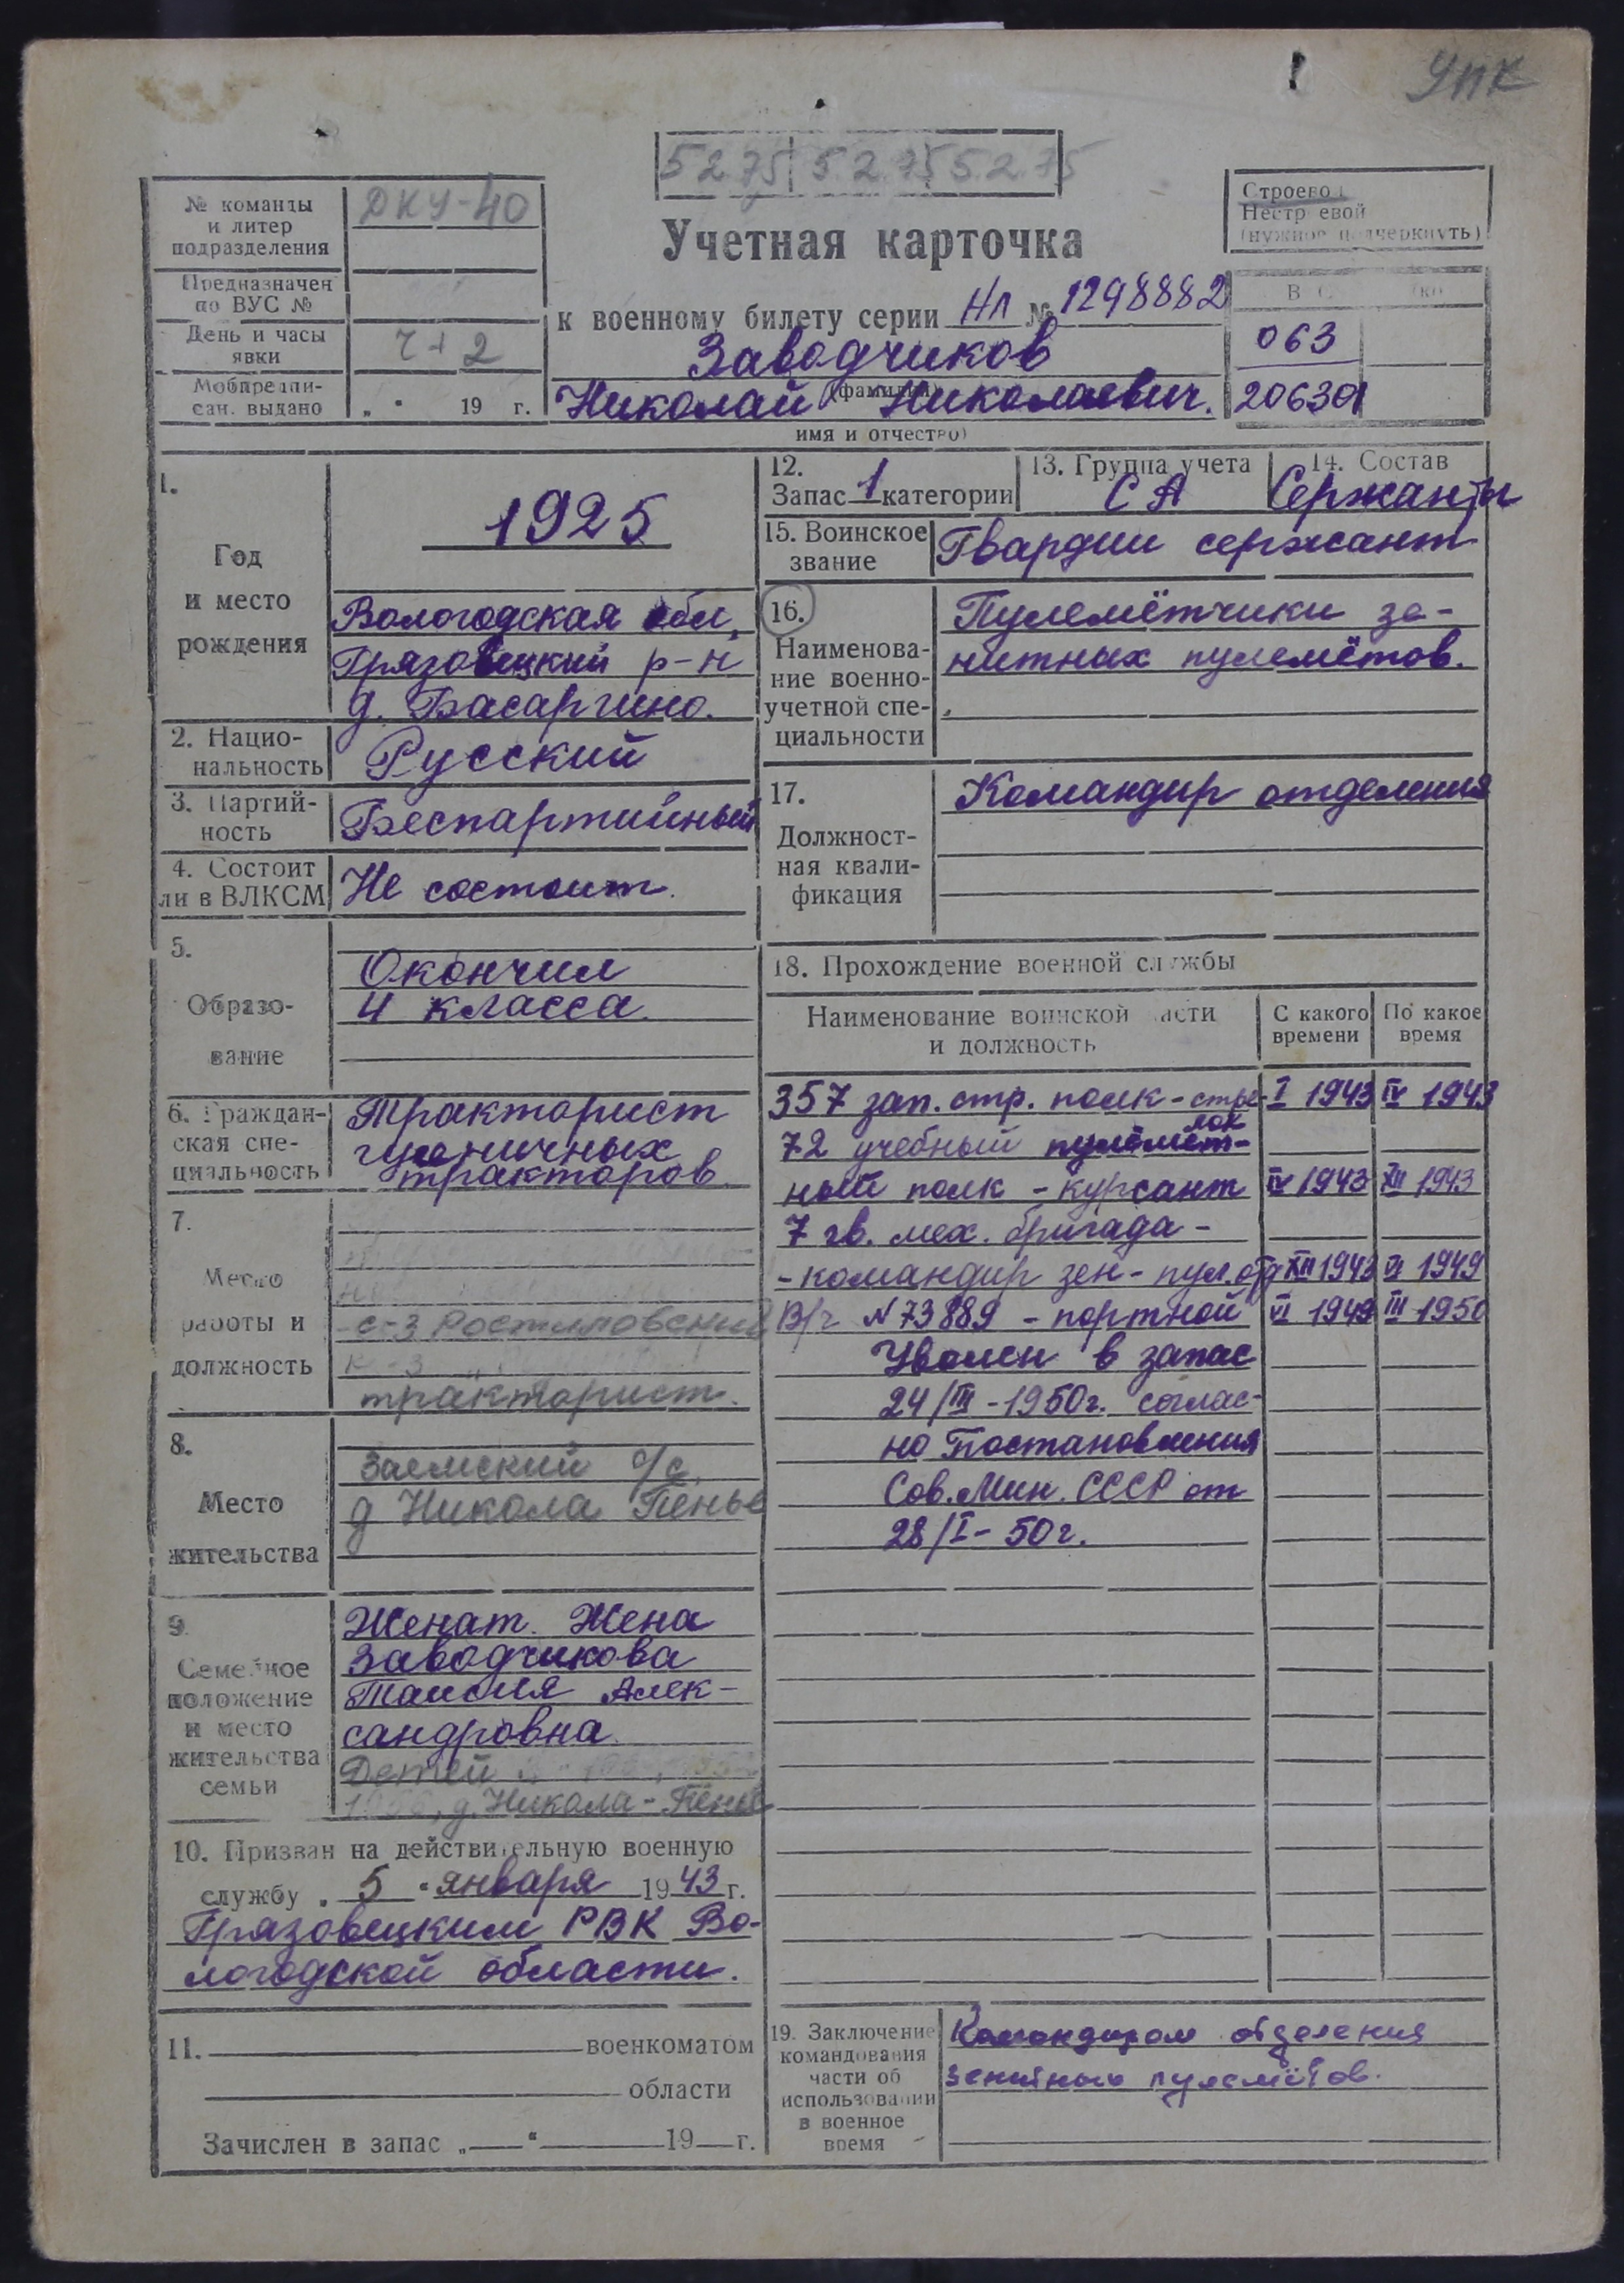 УПК
5.2.75 5.2.75 5.2.75
№ команды
и литер
подразделения
ДКУ-40
Предназначен
по ВУС №
День и часы
явки
Ч+2
Мобпредпи-
сан. выдано
„ “ 19 г.
Учетная карточка
к военному билету серии НЛ № 1298882
Заводчиков
(фамилия)
Николай Николаевич.
имя и отчество)
Строевой
Нестроевой
(нужное подчеркнуть)
063
206301
1.
Год
и место
рождения
1925
Вологодская обл,
Грязовецкий р-н
д. Басаргино.
2. Нацио-
нальность
Русский
3. Партий-
ность
Беспартийный
4. Состоит
ли в ВЛКСМ
Не состоит.
5.
Образо-
вание
Окончил
4 класса.
6. Граждан-
ская спе-
циальность
Тракторист
гусеничных
тракторов
7.
Место
работы и
должность
с-з Ростиловский
к-з
тракторист.
8.
Место
жительства
Заемский с/с,
д Никола Пенье
9.
Семейное
положение
и место
жительства
семьи
Женат. Жена
Заводчикова
Таисия Алек-
сандровна.
Детей
д. Никола-Пенье
10. Призван на действительную военную
службу „ 5 “ января 1943 г.
Грязовецким РВК Во-
логодской области.
11. военкоматом
области
Зачислен в запас „ “ 19 г.
12.
Запас 1 категории
13. Группа учета
СА
14. Состав
Сержанты
15. Воинское
звание
Гвардии сержант
16.
Наименова-
ние военно-
учетной спе-
циальности
Пулемётчики зе-
нитных пулемётов.
17.
Должност-
ная квали-
фикация
Командир отделения
18. Прохождение военной службы
Наименование воинской части
и должность
С какого
времени
По какое
время
357 зап. стр. полк - стре- I 1943 IV 1943
лок
72 учебный пулемёт-
ный полк - курсант IV 1943 XII 1943
7 гв. мех. бригада -
- командир зен - пул. отд XII 1943 VI 1949
В/ч N 73889 - портной VI 1949 III 1950
Уволен в запас
24/III - 1950г. соглас-
но Постановления
Сов. Мин. СССР от
28/I - 50г.
19. Заключение
командования
части об
использовании
в военное
время
Командиром отделения
зенитных пулемётов.